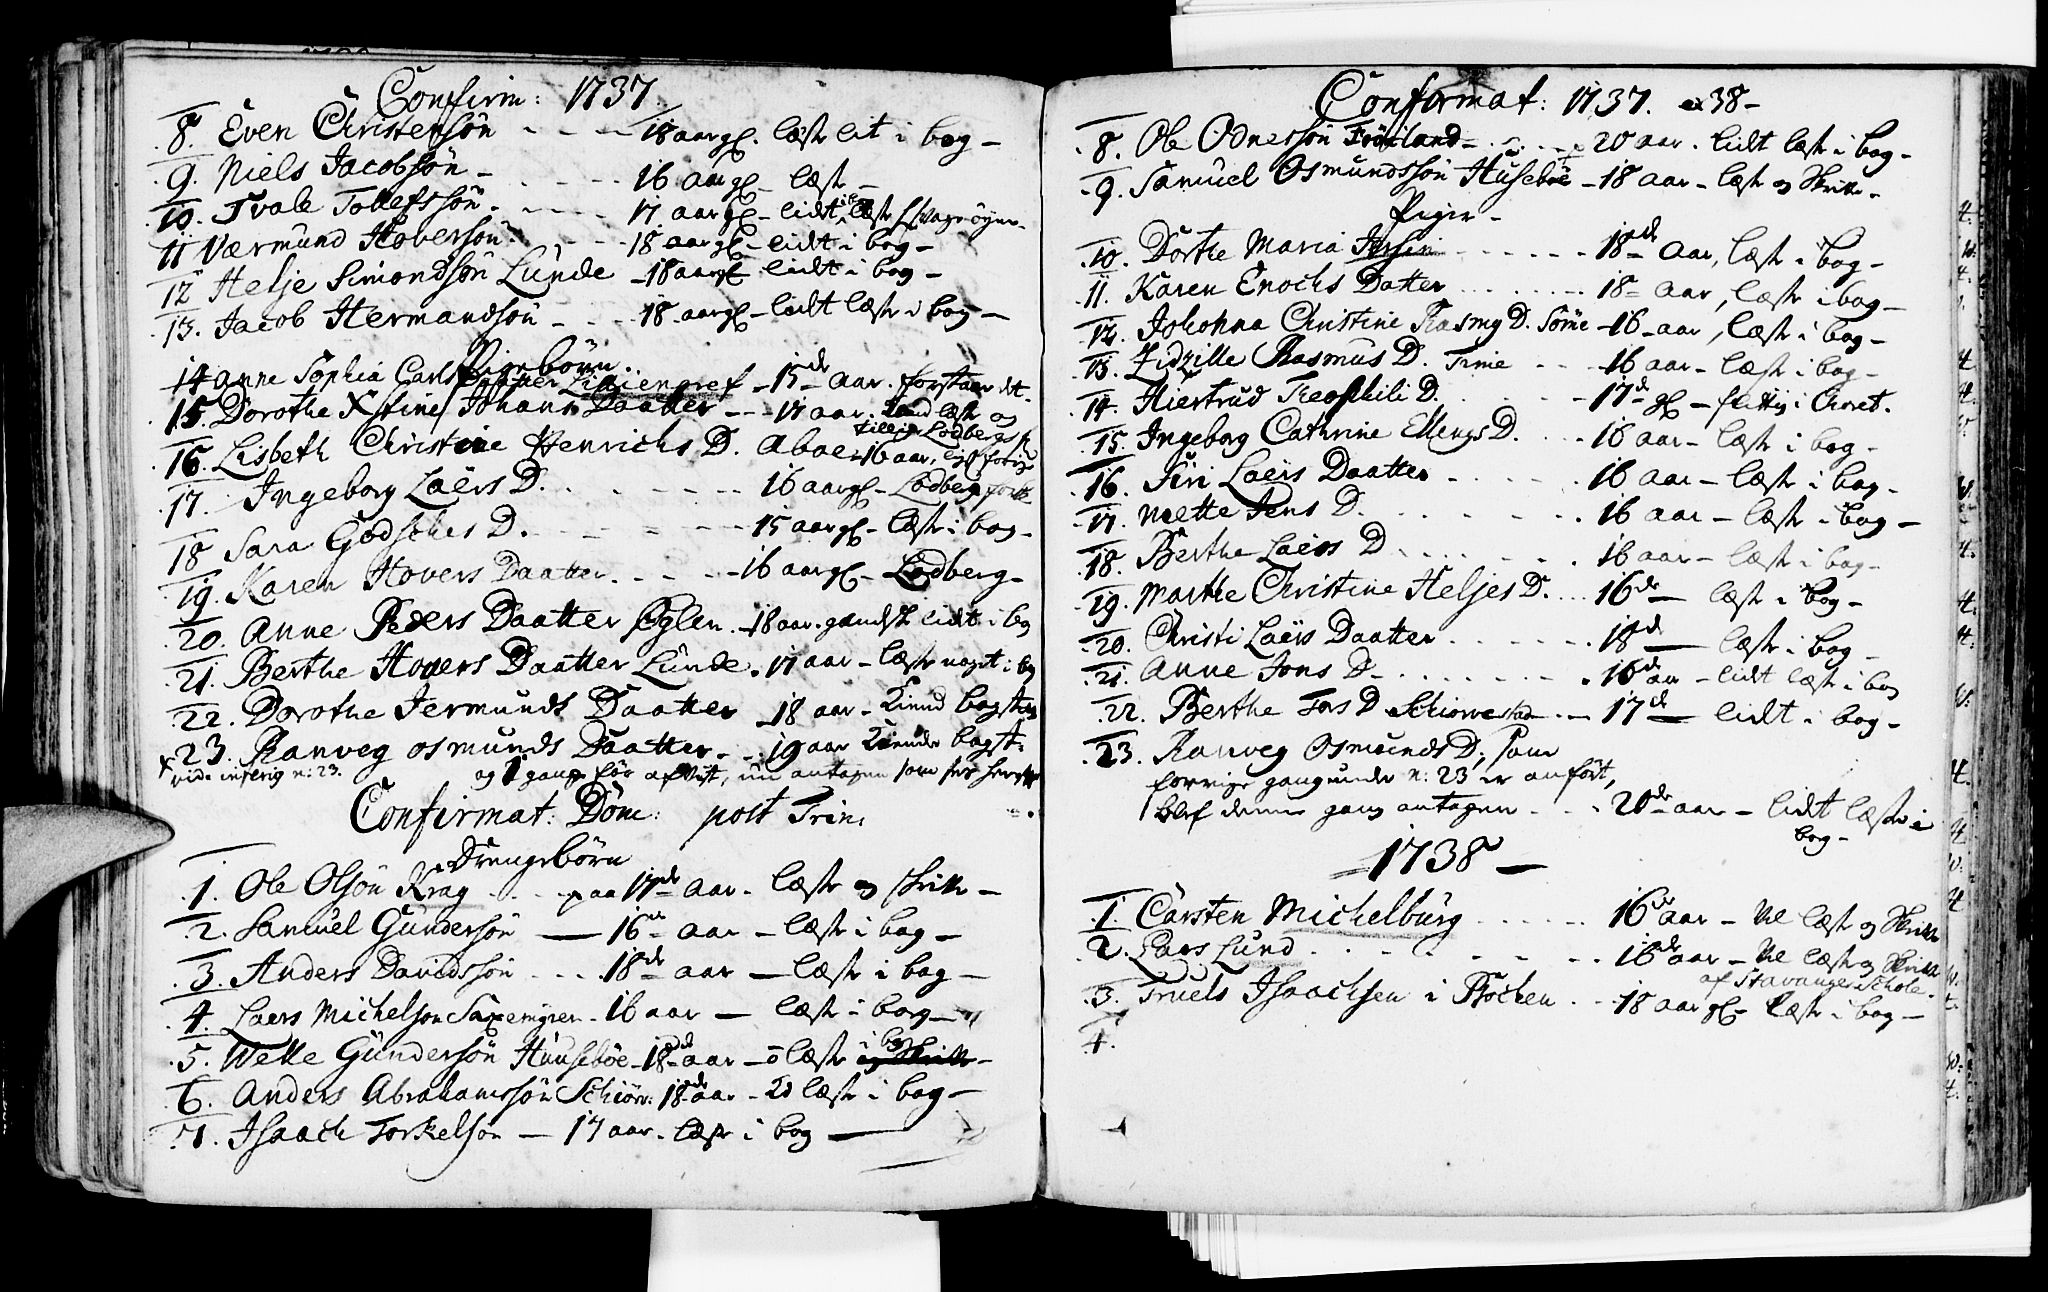 Confirm: 1737.
8. Even Christensön - - - 18 aar gl. læste lit i bog -
9. Niels Jacobsön - - - - 16 aar gl - læste -
10. Tvale Tollefssön - - - - 17 aar gl - lidt læste
11 Værmund Hoversön - - - 18 aar gl - lidt i bog -
12 Helje Simondsön Lunde - 18 aar gl lidt i bog -
13. Jacob Hermandsön - - - 18 aar gl - lidt læste i bog -
Pigebörn.
14 Anne Sophia Carls Daatter Liliengref - 15de aar. forstaar dt.
15. Dorothe Xstine Johans Daatter - - 17 aar. læste og
16. Lisbeth Christine Henrichs D. Aboe - 16 aar,
17. Ingeborg Laers D. - - - - 16 aar gl - Lodberg
18 Sara Godsches D. - - - - 15 aar gl - læste i bog -
19. Karen Hovers Daatter. - - - 16 aar gl - Lodberg -
20. Anne Peders Daatter Öglen. - 18 aar. gandsk lidt i bog
21. Berthe Hovers Daatter Lunde. 17 aar - læste noget i bog
22. Dorothe Jermunds Daatter - 18 aar - Kiend bogsta
x 23. Ranveg Osmunds Daatter - - 19 aar Kiender bogst:
og 1 gang för afvist, nu antagen som
Confirmat: Dom: post Trin:
Drengebörn
1. Ole Olsön Krag - - - paa 17de aar - læste og skrive -
2. Samuel Gundersön - 16de aar - læste i bog -
3. Anders Davidssön - - - 18de aar - læste i bog -
4. Laers Michelson - 16 aar - læste i bog -
5. Welle Gundersön Huusebøe - 18de aar - læste i bog og skrive -
6. Anders Abrahamssön Schiör: 18de aar - læste i bog -
7. Isaach Torkelsön - 17 aar - læste i bog -
Confirmat: 1737. 38 -
8. Ole Odnessön - - - 20 aar. lidt læste i bog -
9. Samuel Osmundssön Husebøe - 18 aar - læste og skrive -
Piger -
10. Dorthe Maria - - - - 18de aar, læste i bog -
11. Karen Enochs Datter - - - - 18 aar, læste i bog -
12. Johanna Christine Rasmus D. Sömme - 16 aar, læste i bog -
13. Zidzille Rasmus D. Time - - - 16 aar - læste i bog -
14. Hiertrud Theophili D. - - - - 17de gl - flittig i Choret.
15. Ingeborg Cathrine Ellings D. - - - 16 aar - læste i bog -
16. Siri Laers Daatter - - - - 16 aar - læste i bog -
17. Mette Jens D. - - - - 16 aar - læste i bog -
18. Berthe Laers D - - - - 16 aar - læste i bog -
19. Marthe Christine Heljes D. - - 16de - læste i bog -
20. Christi Laers Daatter - - - - 18de - læste i bog -
21. Anne Jons D - - - - 16de aar - lidt læst i bog
22. Berthe Tors D Schiorvestad - - 17de - lidt i bog -
23. Ranveg Osmunds D, som
forrige gang under n: 23 er anfört,
blef denne gang antagen - - - 20de aar - lidt læste i
bog -
1738 -
1. Carsten Michelburg - - - - 16de aar - Vel læst og skrive
2. Laers Lund - - - - 16de aar - Vel læst og skrive
af Stavanger Schole.
3. Truels Isaachsen i - - 18 aar gl - læste i bog -
4.